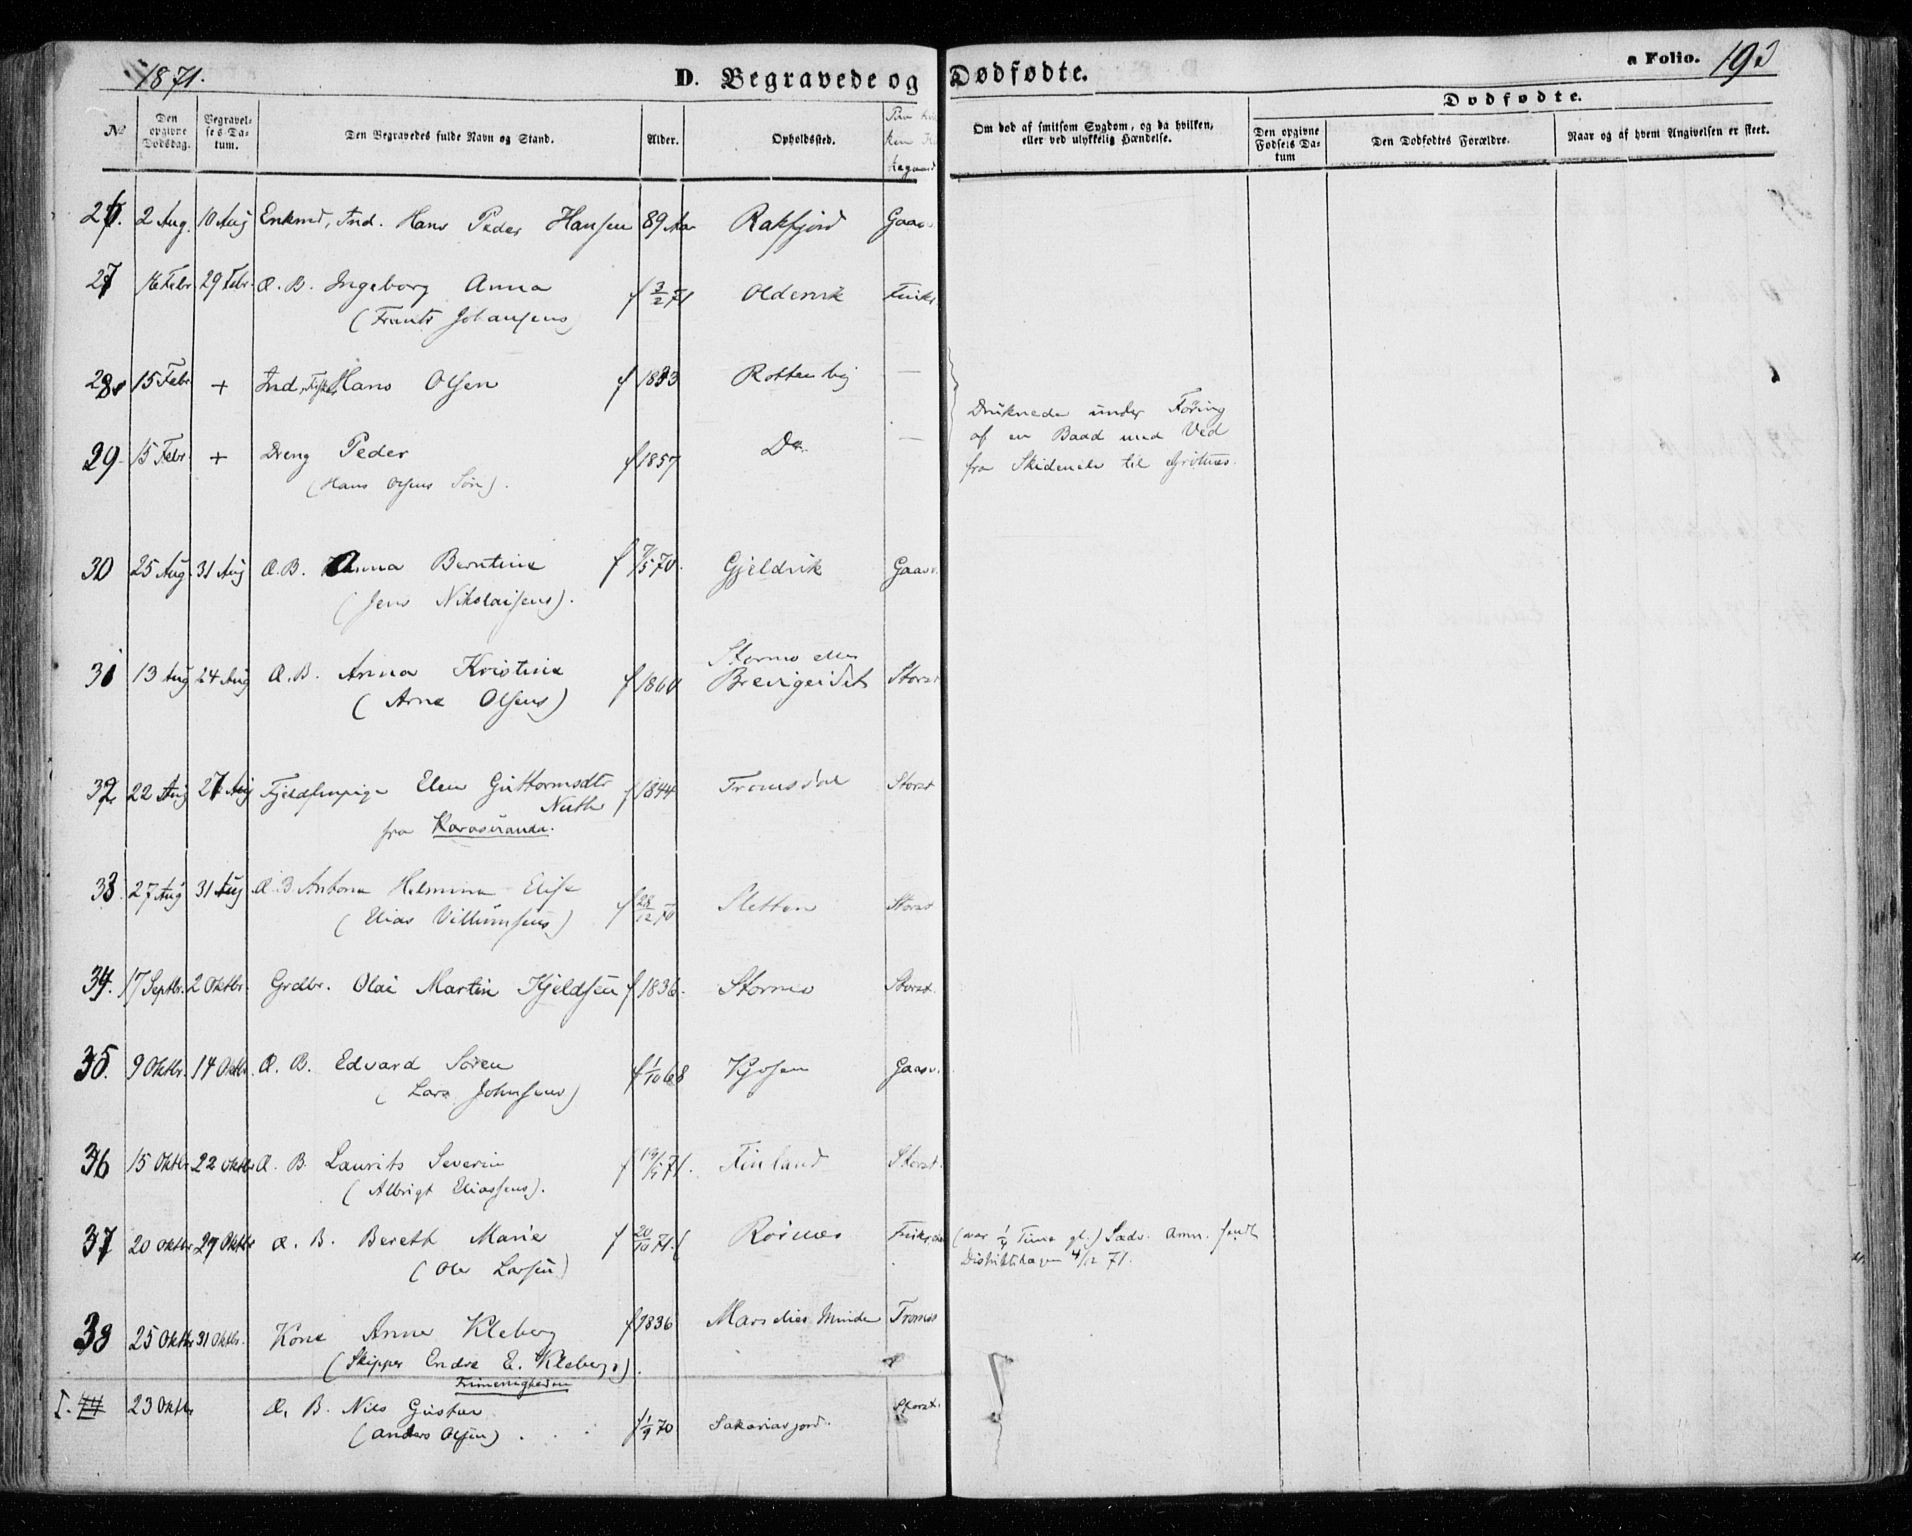 1871.
D. Begravede og Dødfødte.
a Folio. 193
No
Den opgivne Dødsdag.
Begravelses Datum.
Den Begravedes fulde Navn og Stand.
Alder.
Opholdssted.
Om død af smitsom Sygdom, og da hvilken, eller ved ulykkelig Hændelse.
Dødfødte.
Den opgivne Fødsels Datum
Den Dødfødtes Forældre.
Naar og af hvem Angivelsen er skeet.
26. 2 Aug. 10 Aug Enkmd, Ind. Hans Peder Hansen 89 Aar Rakfjord Gaasv
27 16 Febr 29 Febr. Æ. B. Ingeborg Anna f 3/2 71 Oldervik Finkr
(Frants Johansens)
28. 15 Febr. + Ind, Hans Olsen f 1833 Rottenvig —
29. 15 Febr. + Dreng Peder f 1857 Do —
(Hans Olsens Søn).
Druknede under Føring
af en Baad med Ved
fra Skidenelv til Grøtnes.
30 25 Aug. 31 Aug Æ. B. Anna Berntine f 7/5 70. Gjeldvik Gaasv.
(Jens Nikolaisens).
31 13 Aug 24 Aug Æ. B. Anna Kristine f 1860 Stormo eller Breivigeidet Storst
(Arne Olsens)
32 22 Aug 27 Aug Fjeldfinpige Elen Guttormsdtr f 1844 Tromsdal Storst
Nutti
fra Karasuando.
33 27 Aug 31 Aug Æ. B. Antona Helmina Elise f 28/12 70 Sletten Storst
(Elias Villumsens)
34. 17 Septbr. 2 Oktbr. Grdbr. Olai Martin Kjeldsen f 1836. Stormo Storst.
35. 9 Oktbr. 14 Oktbr. Æ. B. Edvard Søren f 1/10 68 Kjosen Gaasv.
(Lars Johnsens)
36 15 Oktbr. 22 Oktbr Æ. B. Laurits Severin 71. Finland Storst.
(Albrigt Eliassens).
37 20 Oktbr 29 Oktbr Æ. B. Bereth Marie f 20/10 71. Røsnes
(Ole Larsen)
(var 1/4 Time gl.) Sædv. Anm. sendt
4/12 71.
38 25 Oktbr 31 Oktbr. Kone Anne Kleberg f 1836 Marselies Minde Tromsø
(Skipper Endre E. Klebergs).
Frimenigheden
I. 23 Oktbr Æ. B. Nils Gustav f 1/9 70 Sakariasjord. Storst.
(Anders Olsen)